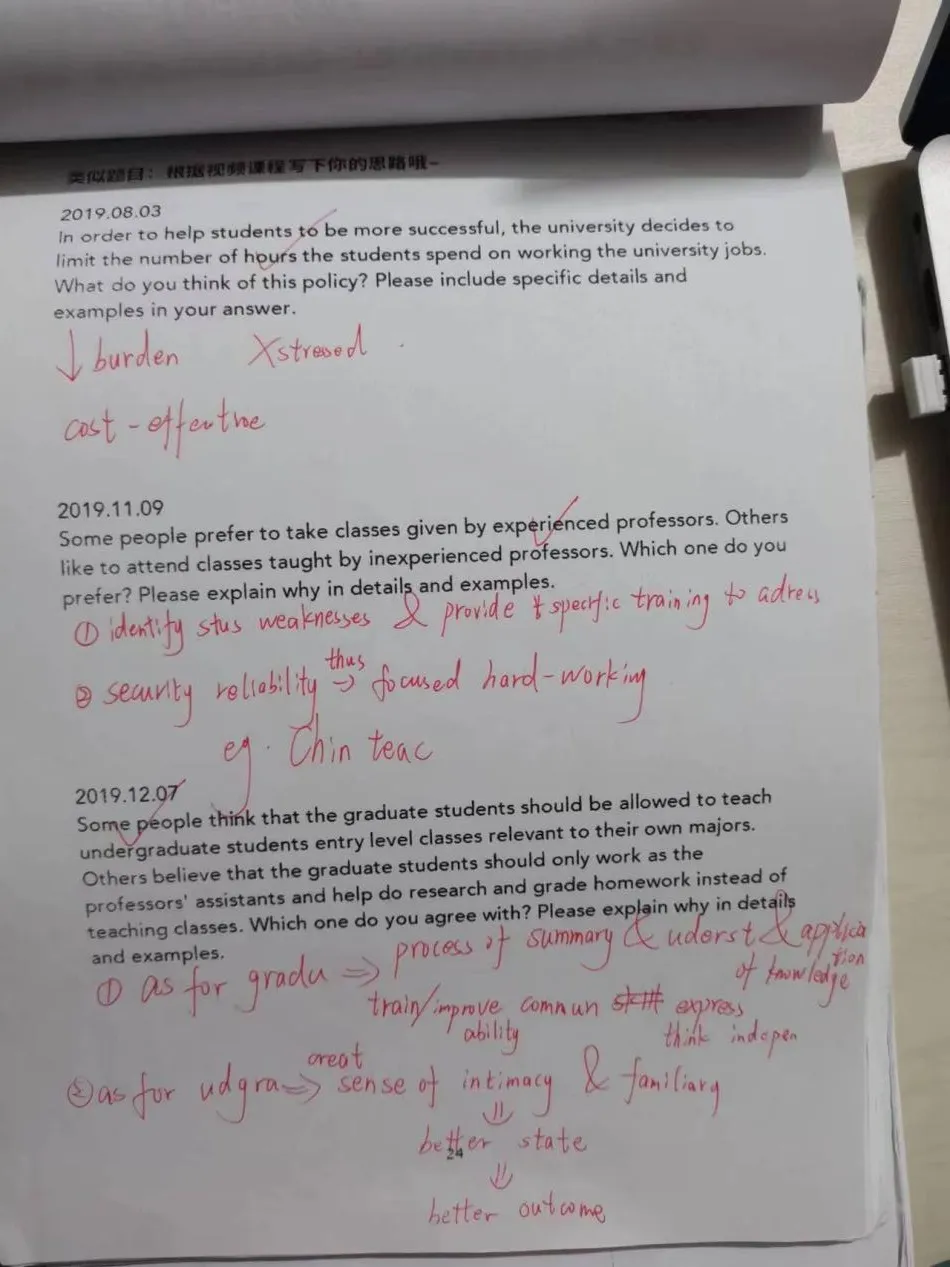 类似题目：根据视频课程写下你的思路哦~
2019.08.03
In order to help students to be more successful, the university decides to
limit the number of hours the students spend on working the university jobs.
What do you think of this policy? Please include specific details and
examples in your answer.
↓ burden X stressed
cost-effective
2019.11.09
Some people prefer to take classes given by experienced professors. Others
like to attend classes taught by inexperienced professors. Which one do you
prefer? Please explain why in details and examples.
① identify stus weaknesses & provide specific training to adress
thus
② security reliability → focused hard-working
eg. Chin teac
2019.12.07
Some people think that the graduate students should be allowed to teach
undergraduate students entry level classes relevant to their own majors.
Others believe that the graduate students should only work as the
professors' assistants and help do research and grade homework instead of
teaching classes. Which one do you agree with? Please explain why in details
and examples.
① as for gradu ⇒ process of summary & uderst & application
of knowledge
train/improve commun express
ability think indepen
creat
② as for udgra ⇒ sense of intimacy & familiary
⇓
better state
24
⇓
better outcome